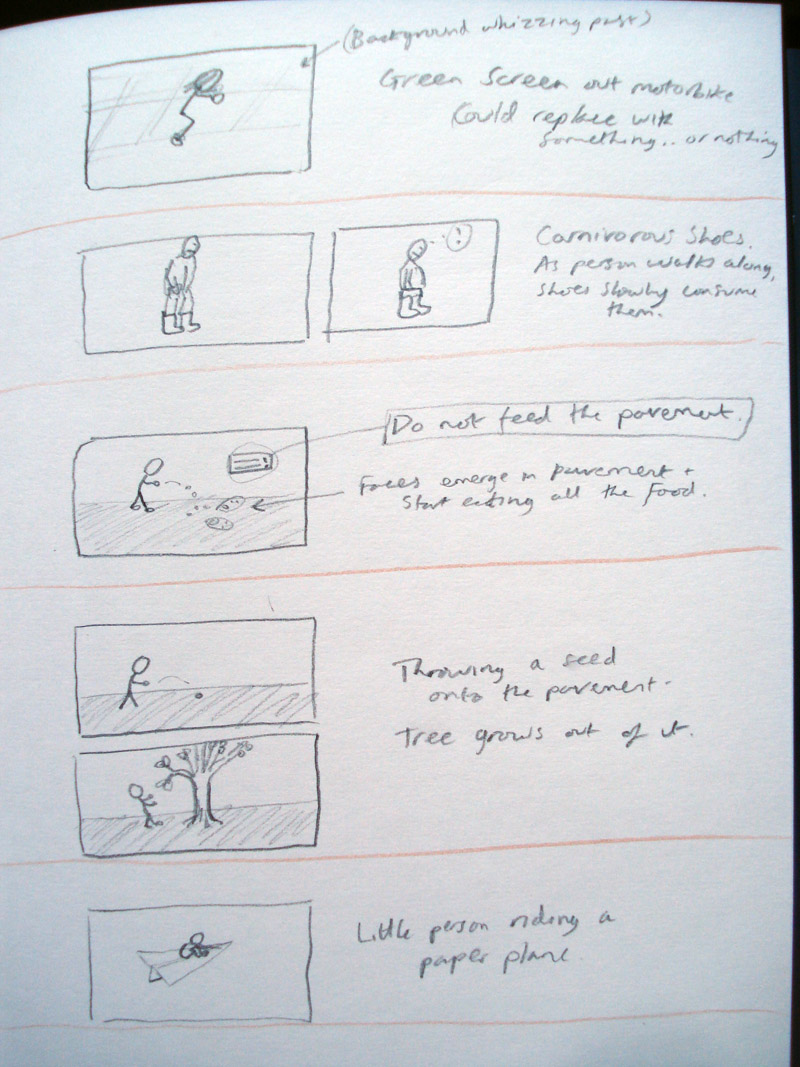 (Background whizzing past)
Green Screen out motorbike
Could replace with
something.. or nothing
Carnivorous Shoes.
As person walks along,
shoes slowly consume
them.
!
Do not feed the pavement.
Faces emerge in pavement +
start eating all the food.
Throwing a seed
onto the pavement.
Tree grows out of it.
Little person riding a
paper plane.